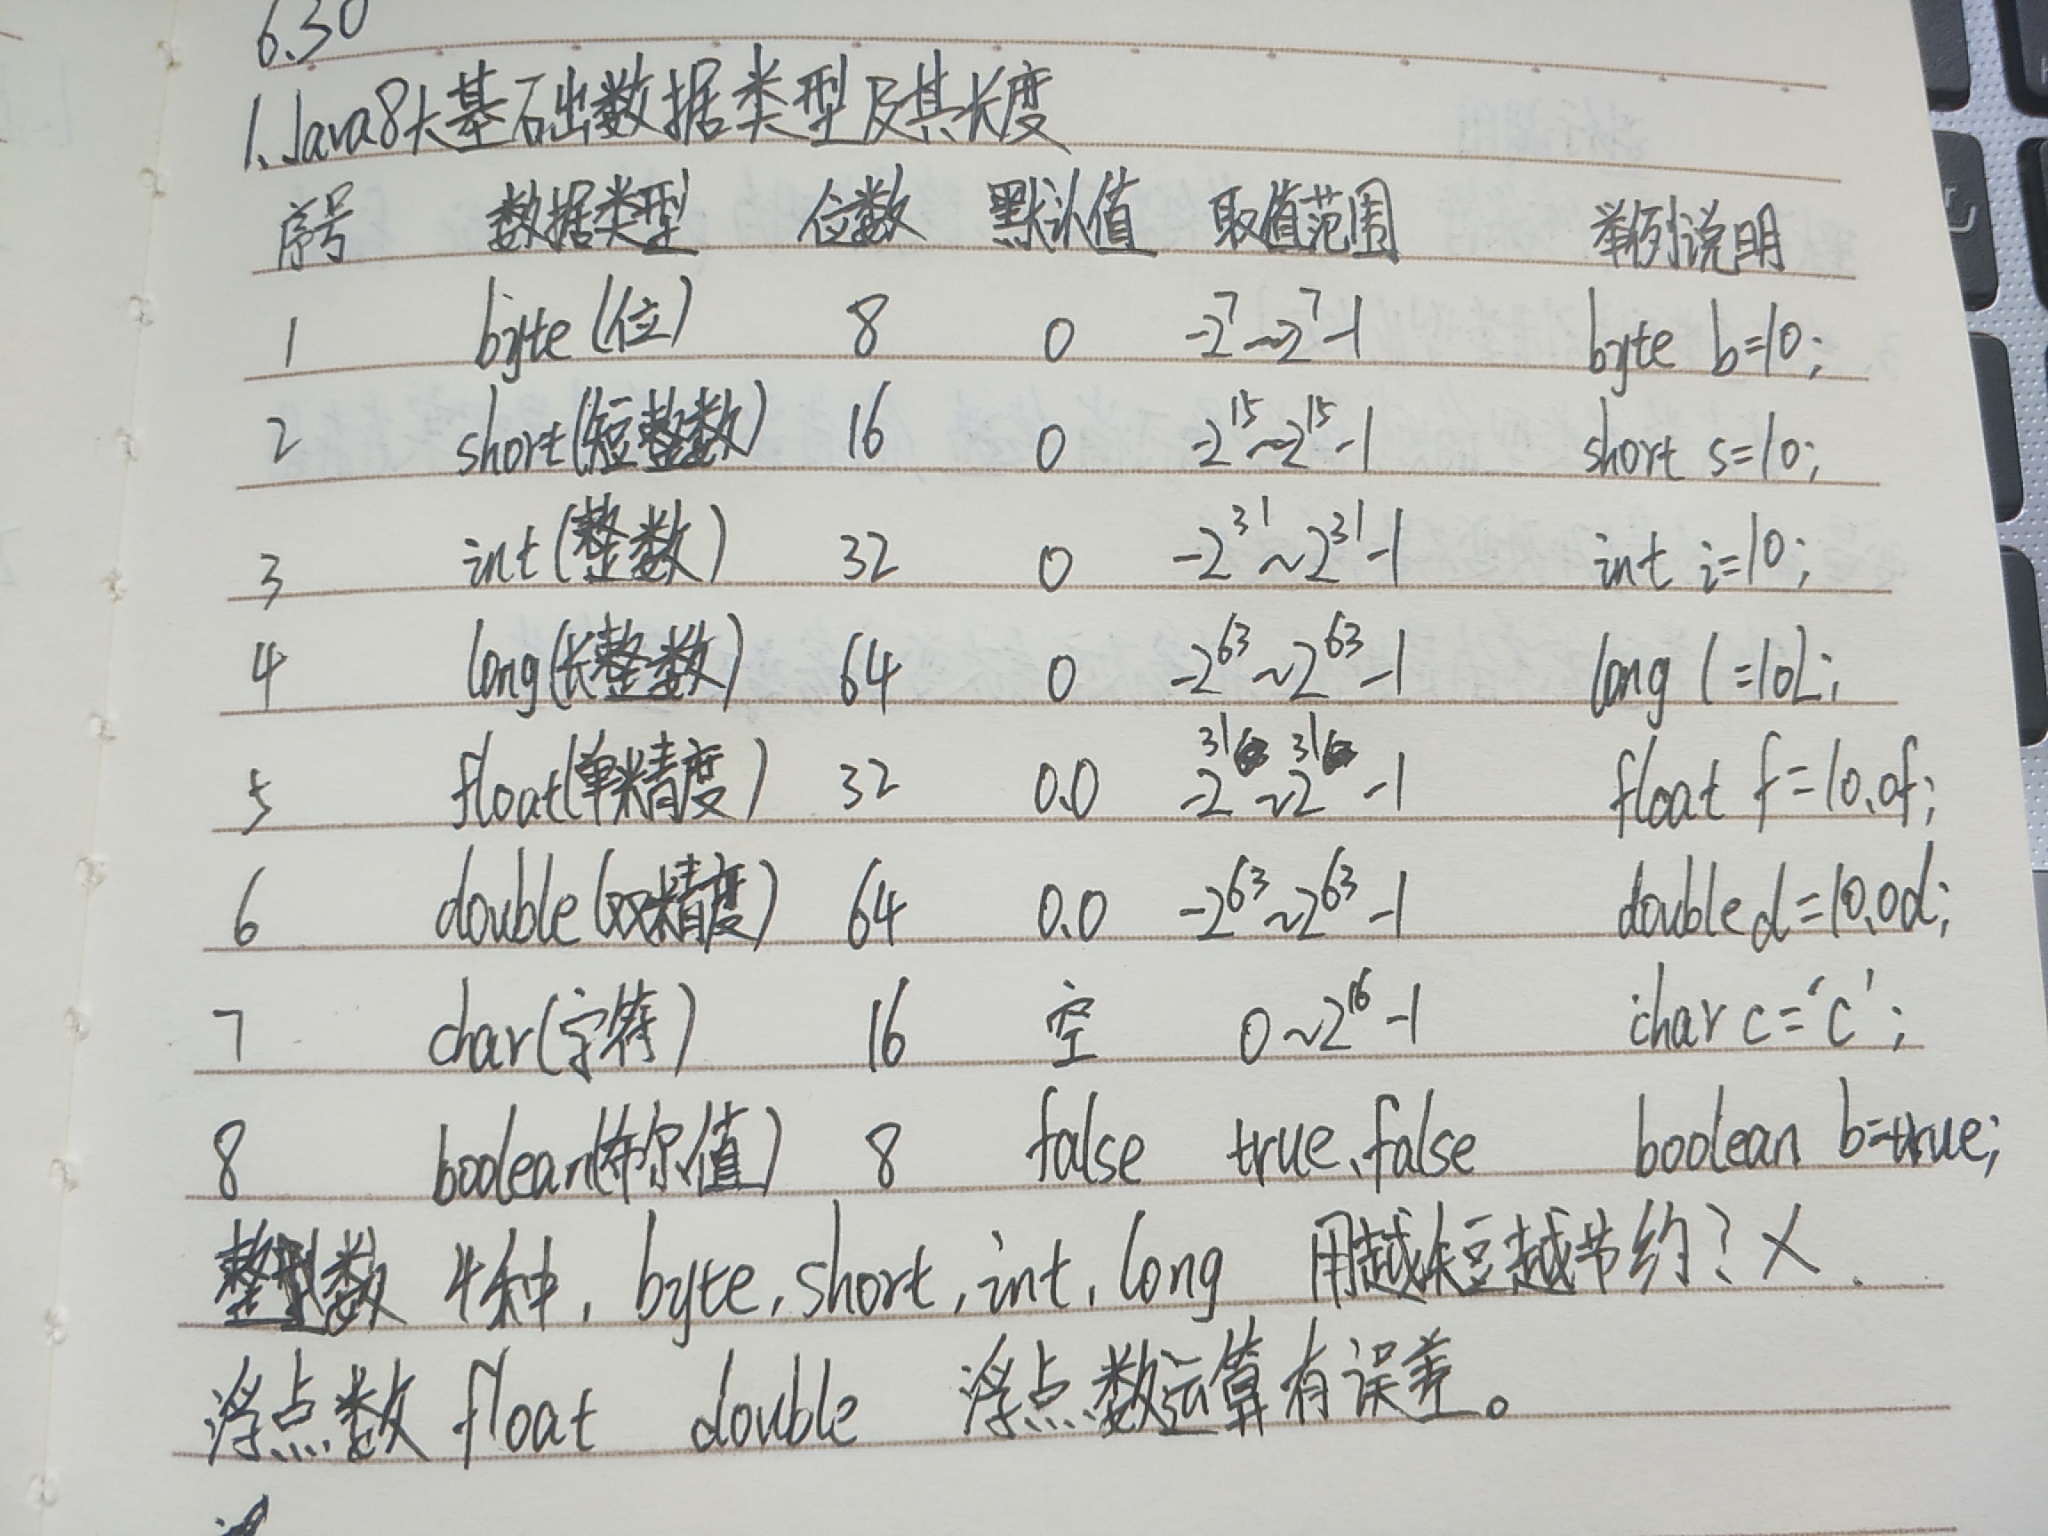 6.30
1.Java8大基础数据类型及其长度
序号 数据类型 位数 默认值 取值范围 举例说明
1 byte(位) 8 0 -2⁷~2⁷-1 byte b=10;
2 short(短整数) 16 0 -2¹⁵~2¹⁵-1 short s=10;
3 int(整数) 32 0 -2³¹~2³¹-1 int i=10;
4 long(长整数) 64 0 -2⁶³~2⁶³-1 long l=10L;
5 float(单精度) 32 0.0 -2³¹~2³¹-1 float f=10.0f;
6 double(双精度) 64 0.0 -2⁶³~2⁶³-1 double d=10.0d;
7 char(字符) 16 空 0~2¹⁶-1 char c='c';
8 boolean(布尔值) 8 false true、false boolean b=true;
整型数 4种, byte, short, int, long 用越短越节约? X
浮点数 float double 浮点数运算有误差。